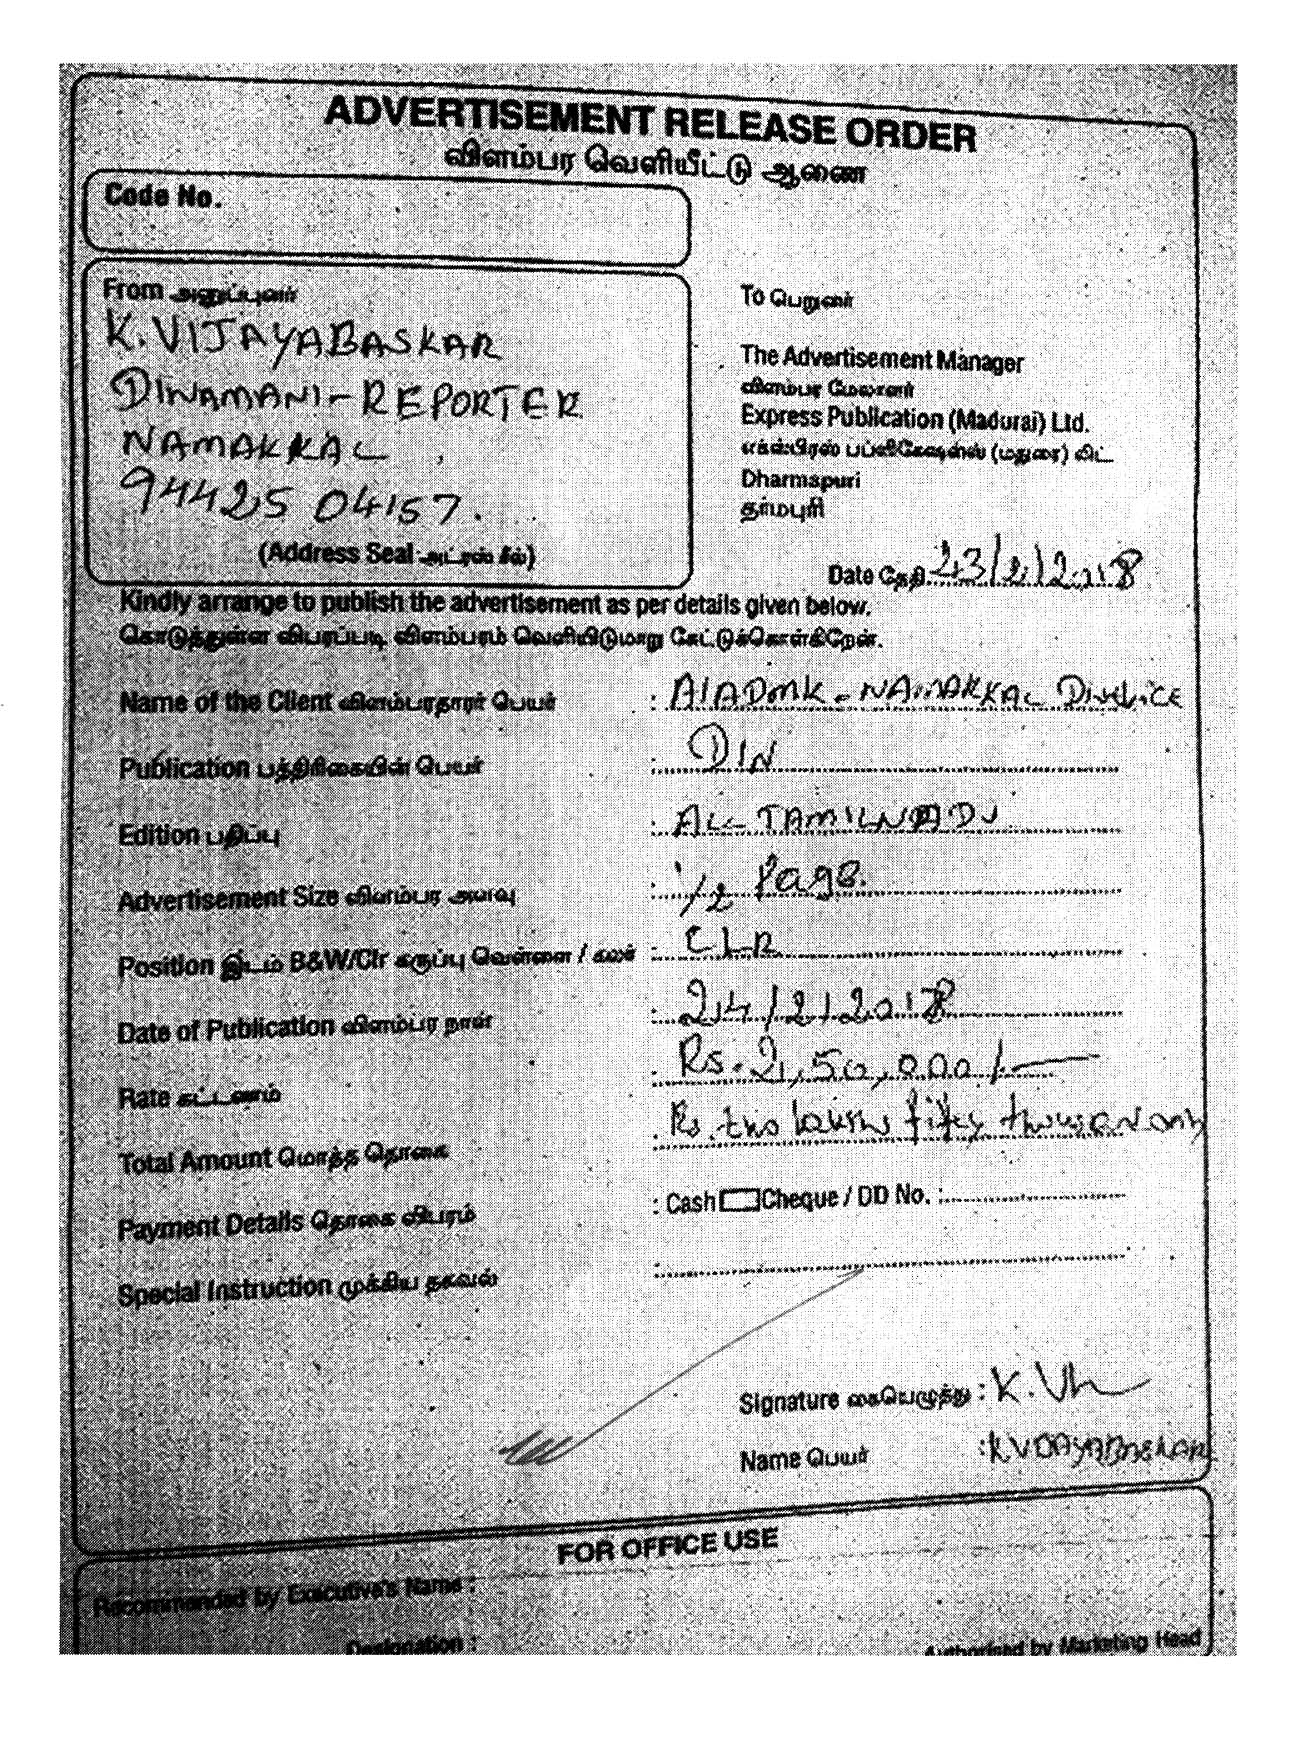 ADVERTISEMENT RELEASE ORDER
விளம்பர வெளியீட்டு ஆணை
Code No.
From அனுப்புனர்
K. VIJAYABASKAR
DINAMANI - REPORTER
NAMAKKAL
94425 04157.
(Address Seal அட்ரஸ் சீல்)
To பெறுனர்
The Advertisement Manager
விளம்பர மேலாளர்
Express Publication (Madurai) Ltd.
எக்ஸ்பிரஸ் பப்ளிகேஷன்ஸ் (மதுரை) லிட்
Dharmapuri
தர்மபுரி
Date தேதி 23/2/2018
Kindly arrange to publish the advertisement as per details given below.
கொடுத்துள்ள விபரப்படி விளம்பரம் வெளியிடுமாறு கேட்டுக்கொள்கிறேன்.
Name of the Client விளம்பரதாரர் பெயர் : AIADMK - NAMAKKAL
Publication பத்திரிகையின் பெயர் : DIN
Edition பதிப்பு : ALL TAMILNADU
Advertisement Size விளம்பர அளவு : 1/2 Page.
Position இடம் B&W/Clr கருப்பு வெள்ளை / கலர் : CLR
Date of Publication விளம்பர நாள் : 24/2/2018
Rate கட்டணம் : Rs. 2,50,000/-
Total Amount மொத்த தொகை : Rs. two lakhs fifty thousand only
Payment Details தொகை விபரம் : Cash Cheque / DD No. :
Special Instruction முக்கிய தகவல் :
Signature கையெழுத்து : K. Vh
Name பெயர் : K VIJAYABASKAR
FOR OFFICE USE
Recommended by Executive's Name :
Designation :
Authorised by Marketing Head